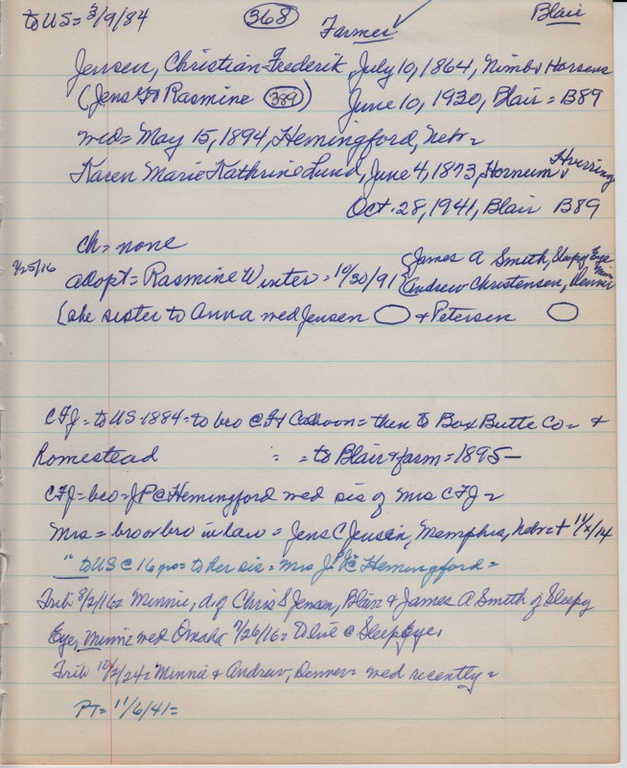 to US = 3/9/84 368 Farmer ✓ Blair
Jensen, Christian Frederik, July 10, 1864, Nimbo Horsens
(Jens & Rasmine 389) June 10, 1930, Blair = B89
wed = May 15, 1894, Hemingford, Nebr =
Karen Marie Kathrine Lund, June 4, 1873, Hornum, Hjorring
Oct. 28, 1941, Blair B89
ch = none
7/25/16 James A Smith, Sleepy Eye Minn
adopt = Rasmine Winter = 10/30/91 Andrew Christensen, Denver
(she sister to Anna wed Jensen & Petersen
CFJ = to US 1884 = to bro @ Ft Calhoun = then to Box Butte Co = &
Homestead = to Blair & farm = 1895 -
CFJ = bro = JP @ Hemingford wed sis of Mrs CFJ =
Mrs = bro or bro in law = Jens C Jensen, Memphis, Nebr = + 11/2/14
" to US @ 16 = to her sis = Mrs JP @ Hemingford =
Trib 8/2/16 = Minnie, d of Chris S Jensen, Blair & James A Smith of Sleepy
Eye, Minnie wed Omaha 7/26/16 = To live @ Sleep Eye,
Trib 10/2/24 = Minnie & Andrew, Denver = wed recently =
PT = 11/6/41 =